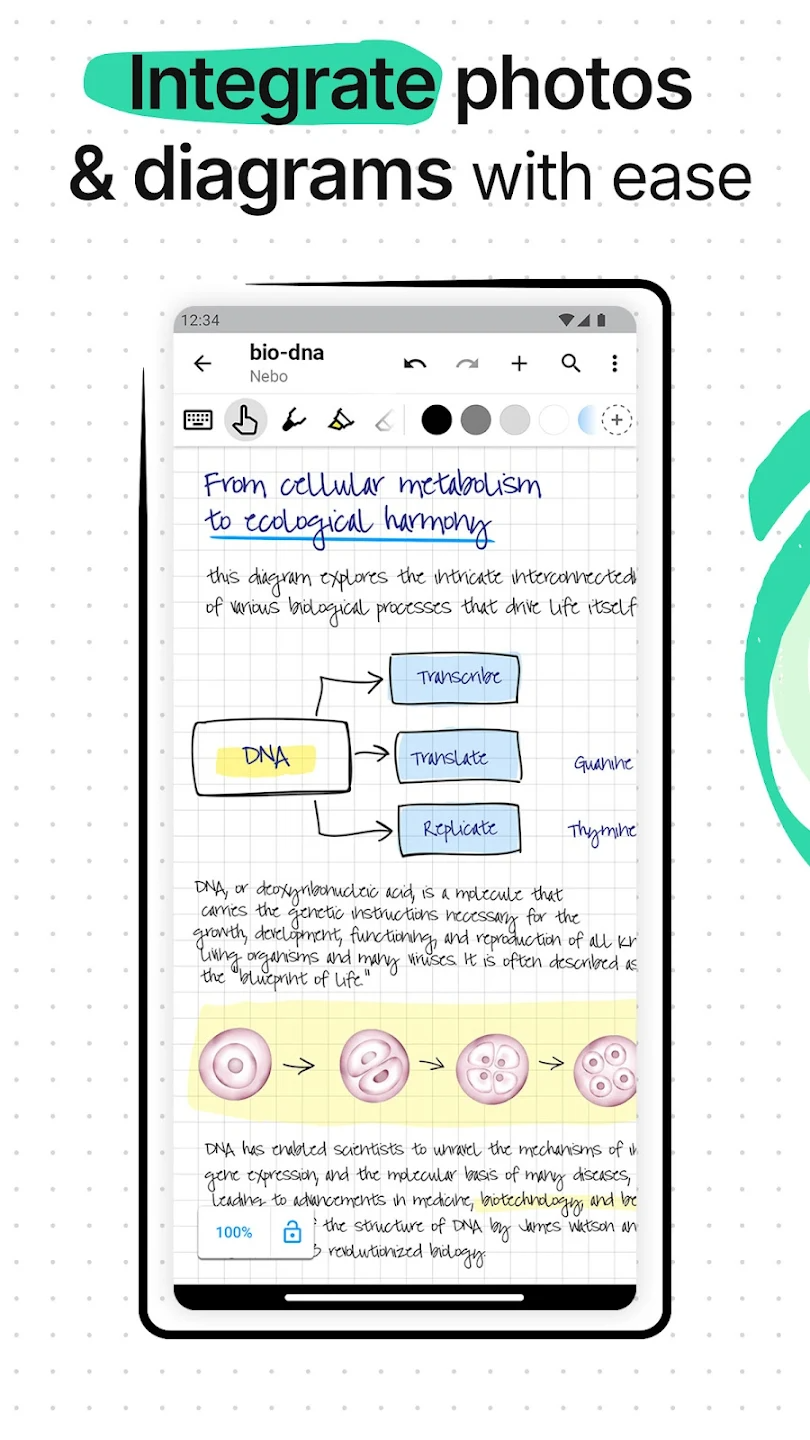 Integrate photos
& diagrams with ease
12:34
bio-dna
Nebo
From cellular metabolism
to ecological harmony
this diagram explores the intricate
of various biological processes that drive life itself
Transcribe
DNA
Translate
Guanine
Replicate
Thymine
DNA, or deoxyribonucleic acid, is a molecule that
carries the genetic instructions necessary for the
growth, development, functioning, and reproduction of all
living organisms and many viruses. It is often described as
the "blueprint of life."
DNA has enabled scientists to unravel the mechanisms of
gene expression, and the molecular basis of many diseases,
leading to advancements in medicine, biotechnology, and
100%
the structure of DNA by James Watson
revolutionized biology.